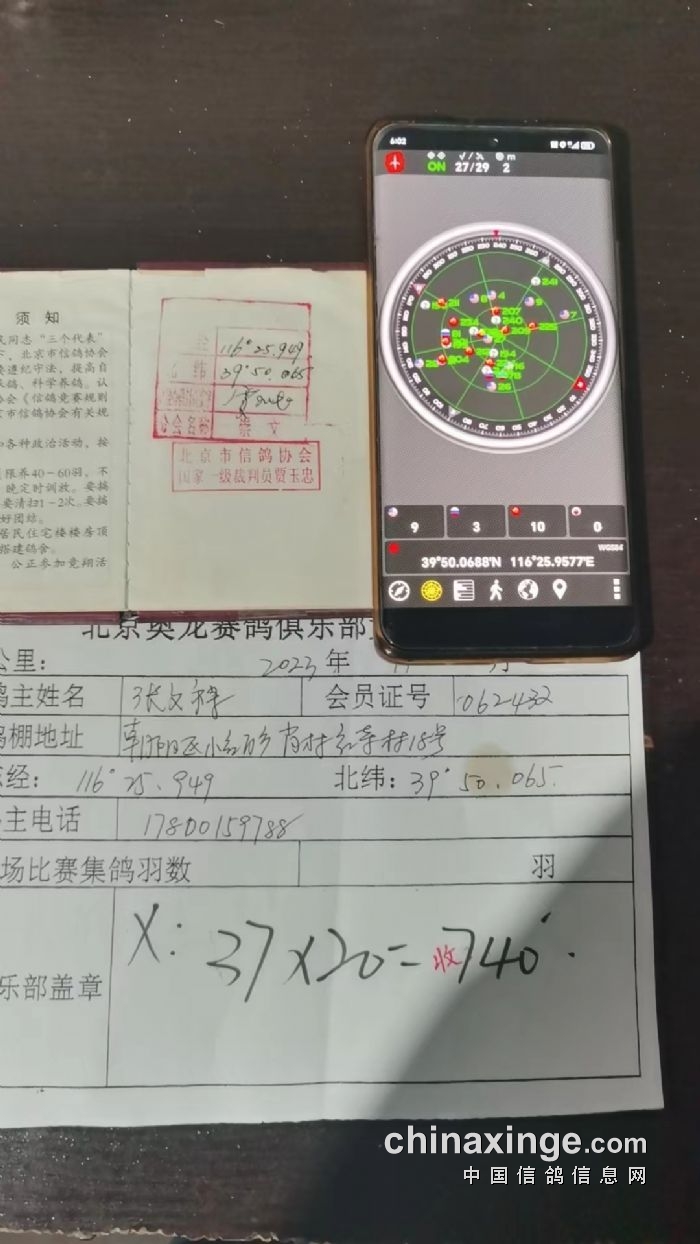 须 知
民同志“三个代表”
，北京市信鸽协会
要遵纪守法，提高自
鸽、科学养鸽。认
协会《信鸽竞赛规则
京市信鸽协会有关规
加各种政治活动，按
限养40-60羽，不
晚定时训放。要搞
要清扫1-2次。要搞
好团结。
居民住宅楼楼房顶
搭建鸽舍。
公正参加竞翔活
116°25.949
纬 39°50.065
分会名称 崇文
北京市信鸽协会
国家一级裁判员贾玉忠
6:02
ON 27/29 2
m
9 3 10 0
WGS84
39°50.0688'N 116°25.9577'E
北京奥龙赛鸽俱乐部
公里： 2023年 月
鸽主姓名 张文 会员证号 062432
鸽棚地址 朝阳区小红门乡 村18号
经： 116°25.949 北纬：39°50.065.
主电话 17800159788
场比赛集鸽羽数 羽
乐部盖章 X: 37×20=收740
chinaxinge.com
中国信鸽信息网